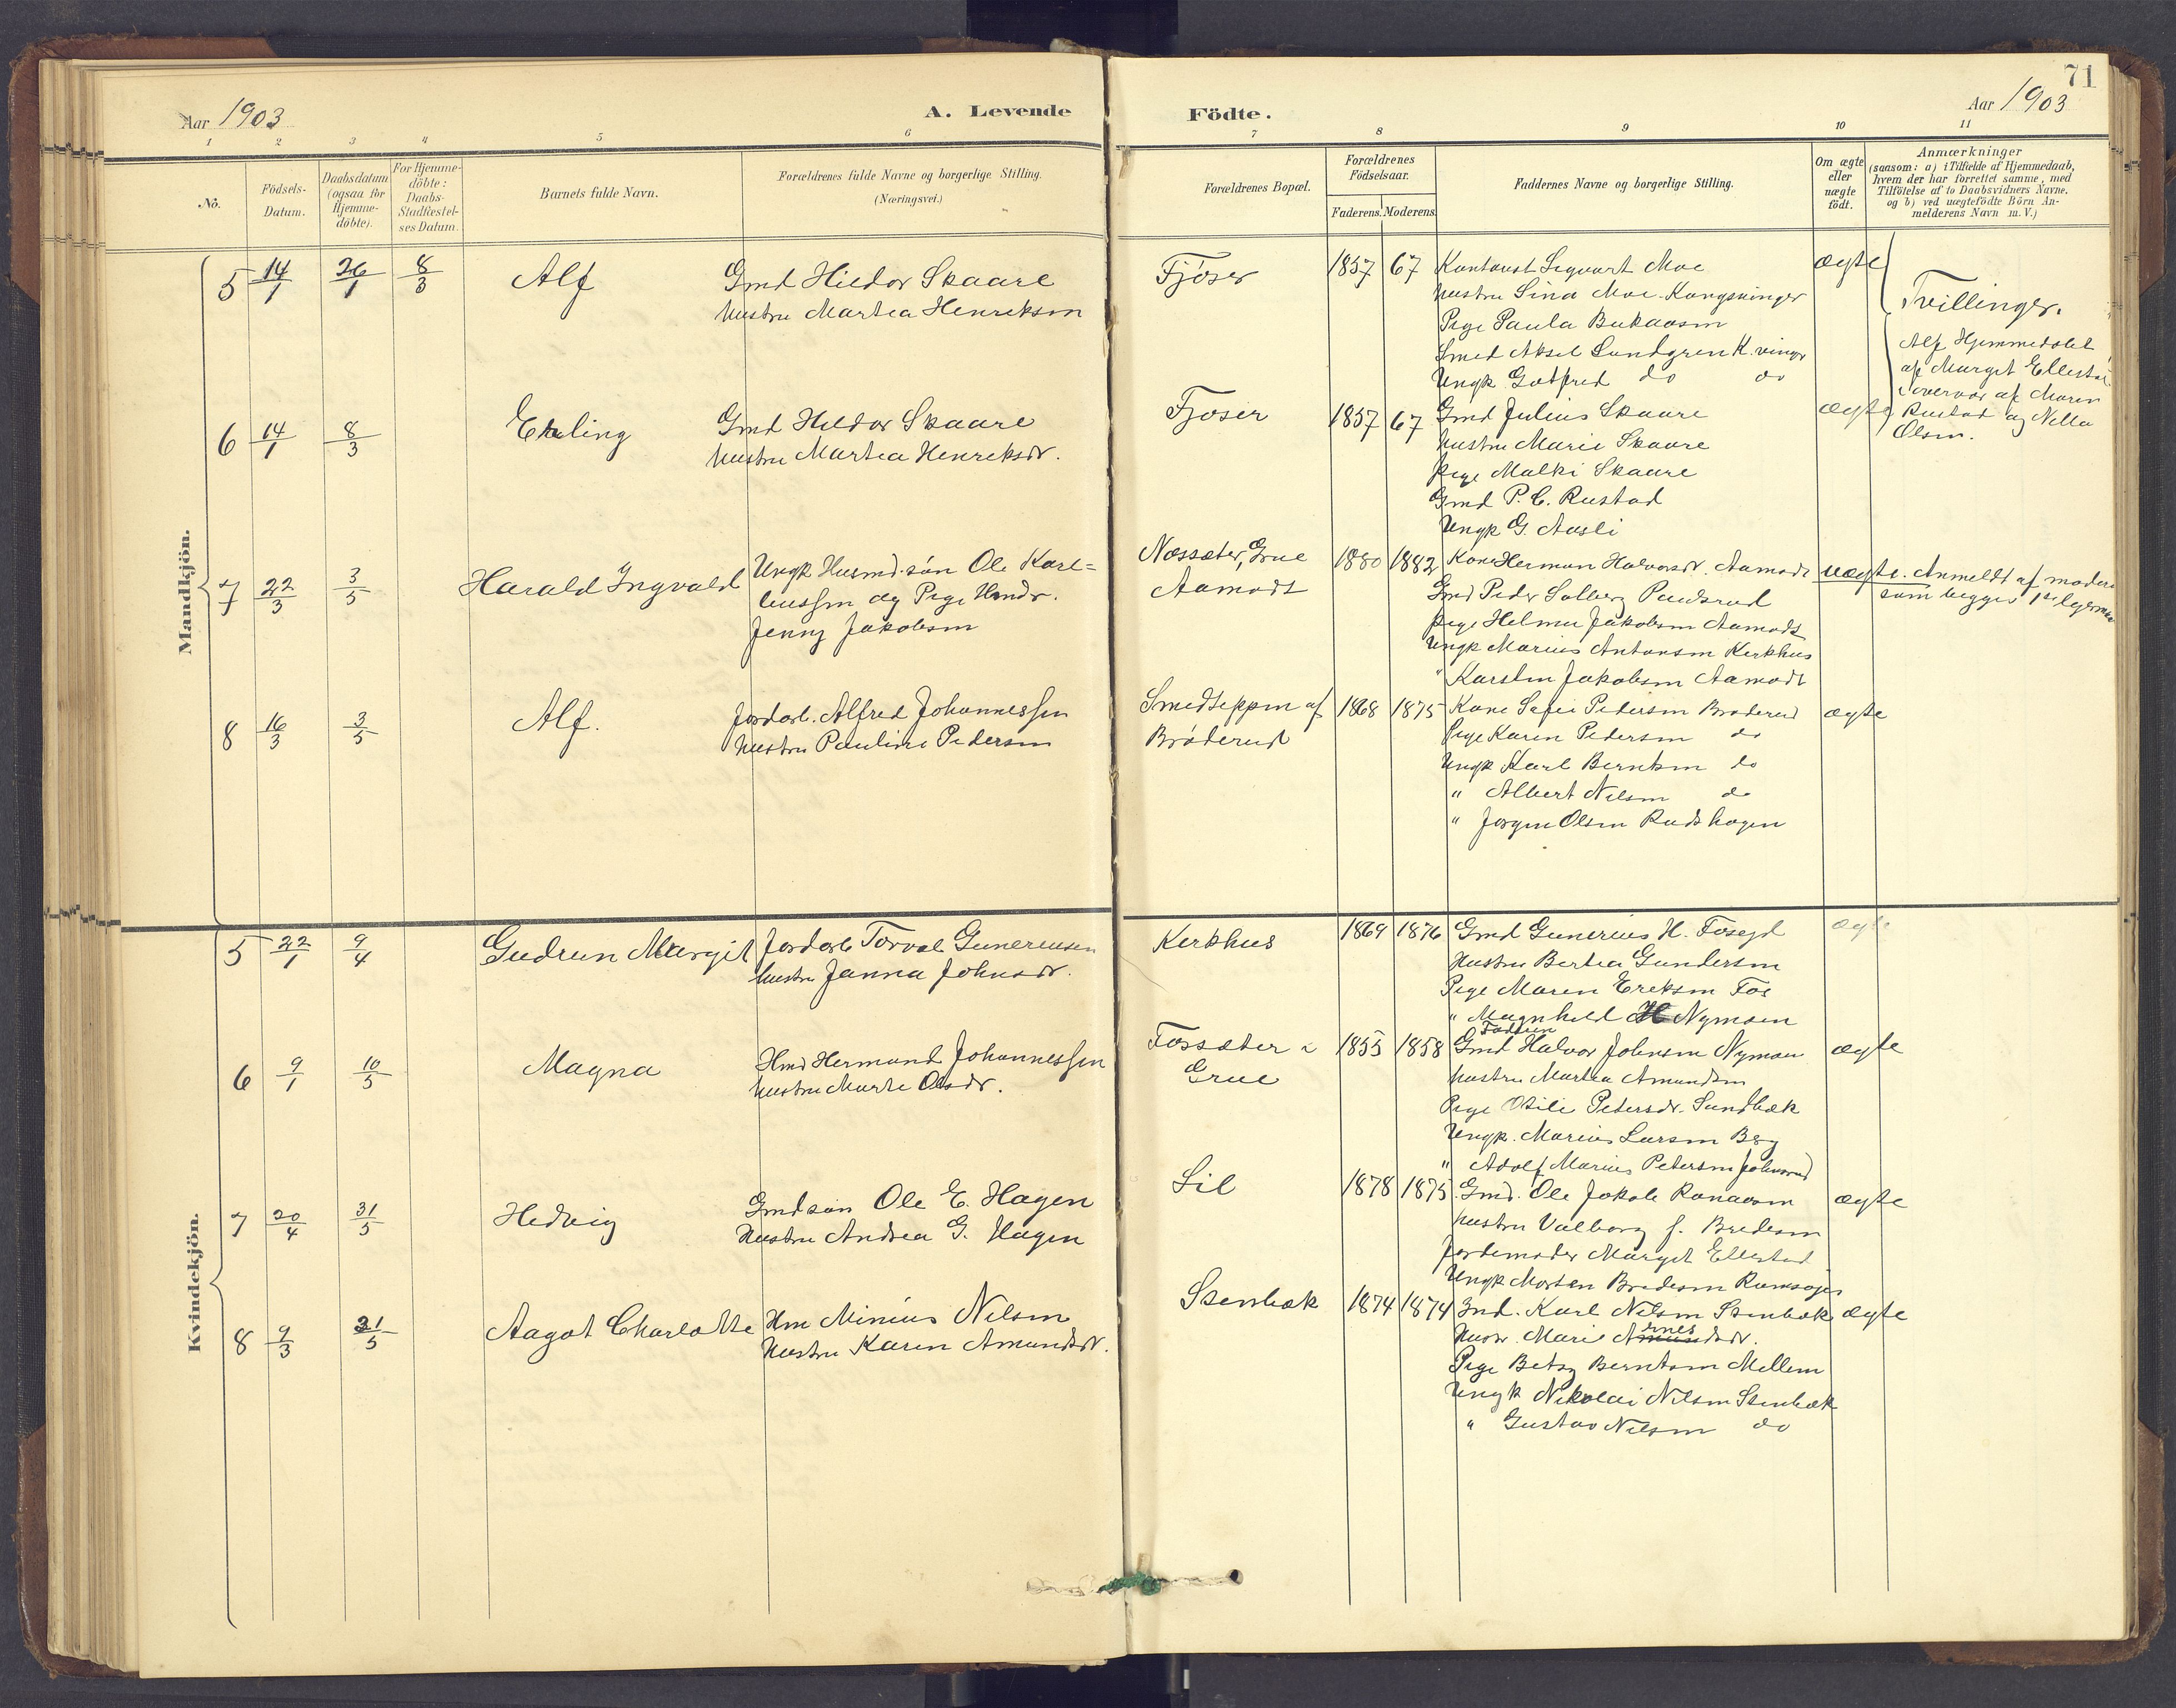 71
Aar 1903
A. Levende
Födte.
Aar 1903
1 2 3 4 5 6 7 8 9 10 11
No.
Födsels-
Datum.
Daabsdatum
(ogsaa for
Hjemme-
döbte).
For Hjemme-
döbte:
Daabs-
Stadfæstel-
ses Datum.
Barnets fulde Navn.
Forældrenes fulde Navne og borgerlige Stilling.
(Næringsvei.)
Forældrenes Bopæl.
Forældrenes
Födselsaar.
Faderens. Moderens.
Faddernes Navne og borgerlige Stilling.
Om ægte
eller
uægte
födt.
Anmærkninger
(saasom: a) i Tilfælde af Hjemmedaab,
hvem der har forrettet samme, med
Tilföielse af to Daabsvidners Navne.
og b) ved uægtefödte Börn An-
melderens Navn m. V.)
Mandkjön.
5 14/1 26/1 8/3 Alf
Gmd Hildor Skaare
Hustru Martea Henriksen
Fjöser
1857 67
Kontorist Sigvart Moe
Hustru Sina Moe Kongsvinger
Pige Paula
Smed Aksel Lundgren K.vinger
Ungk Gotfred do do
ægte
Tvillinger.
Alf Hjemmedöbt
af Margit Ellestad
overvær af Maren
Rustad og Nella
Olsen.
6 14/1 8/3 Erling
Gmd Hildor Skaare
Hustru Martea Henriksdr.
Fjöser
1857 67
Gmd Julius Skaare
Hustru Marie Skaare
Pige Malki Skaare
Gmd P. C. Rustad
Ungk G. Aasli
ægte
7 22/3 3/5 Harald Ingvald
Ungk Husmd.sön Ole Karl=
eussen og Pige Hmdr.
Jenny Jakobsen
Næssæter, Grue
Aamodt
1880 1882
Kone Herman Halvorsdr. Aamodt
Gmd Peder Solberg
Pige Helma Jakobsen Aamodt
Ungk Marius Antonsen Kirkhus
" Karsten Jakobsen Aamodt
uægte. Anmeldt af moderen
som begges 1ste leiermaal
8 16/3 3/5 Alf.
Jordarb. Alfred Johannessen
Hustru Pauline Pedersen
Smedseppen af
Bröderud
1868 1875
Kone Sefie Pedersen Bröderud
Pige Karen Pedersen do
Ungk Karl Berntsen do
" Albert Nilsen do
" Jörgen Olsen Rudshagen
ægte
Kvindekjön.
5 22/1 9/4 Gudrun Margit
Jordarb Torval Gunereusen
Hustru Janna Johnsdr.
Kirkhus
1869 1876
Gmd Gunerius H. Foseyd
Hustru Bertea Gundersen
Pige Maren Eriksen Fos
" Magnhild Nymoen
Faderen
ægte
6 9/1 10/5 Magna
Hmd Hermand Johannessen
Hustru Marte Olsdr.
Fossæter i
Grue
1855 1858
Gmd Halvor Johnsen Nymoen
Hustru Martea Amundsen
Pige Otilie Petersdr. Sundbæk
Ungk. Marius Larsen Berg
" Adolf Marius Petersen Johnsrud
ægte
7 20/4 31/5 Hedvig
Gmdsön Ole E. Hagen
Hustru Andrea G. Hagen
Lil
1878 1875
Gmd. Ole Jakob
Hustru Valborg f. Bredesen
Jordemoder Margit Ellestad
Ungk Morten Bredesen
ægte
8 9/3 31/5 Aagot Charlotte
Hm Minius Nilsen
Hustru Karen Amundsdr.
Stenbæk
1874 1874
Ind. Karl Nilsen Stenbæk
Hustr. Marie Arnesdr.
Pige Betsy Berntsen Mellem
Ungk Nikolai Nilsen Stenbæk
" Gustav Nilsen do
ægte